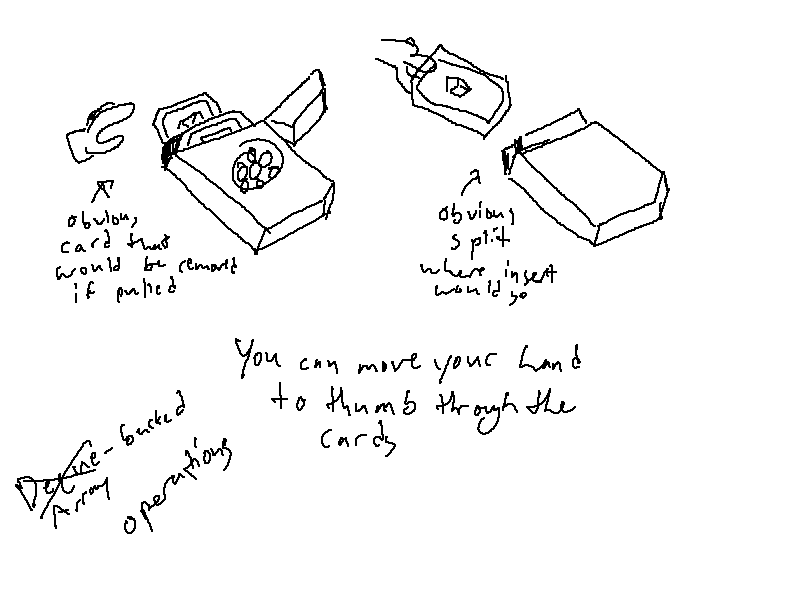 obvious
card that
would be removed
if pulled
obvious
split
where insert
would go
You can move your hand
to thumb through the
cards
-backed
Array
operations